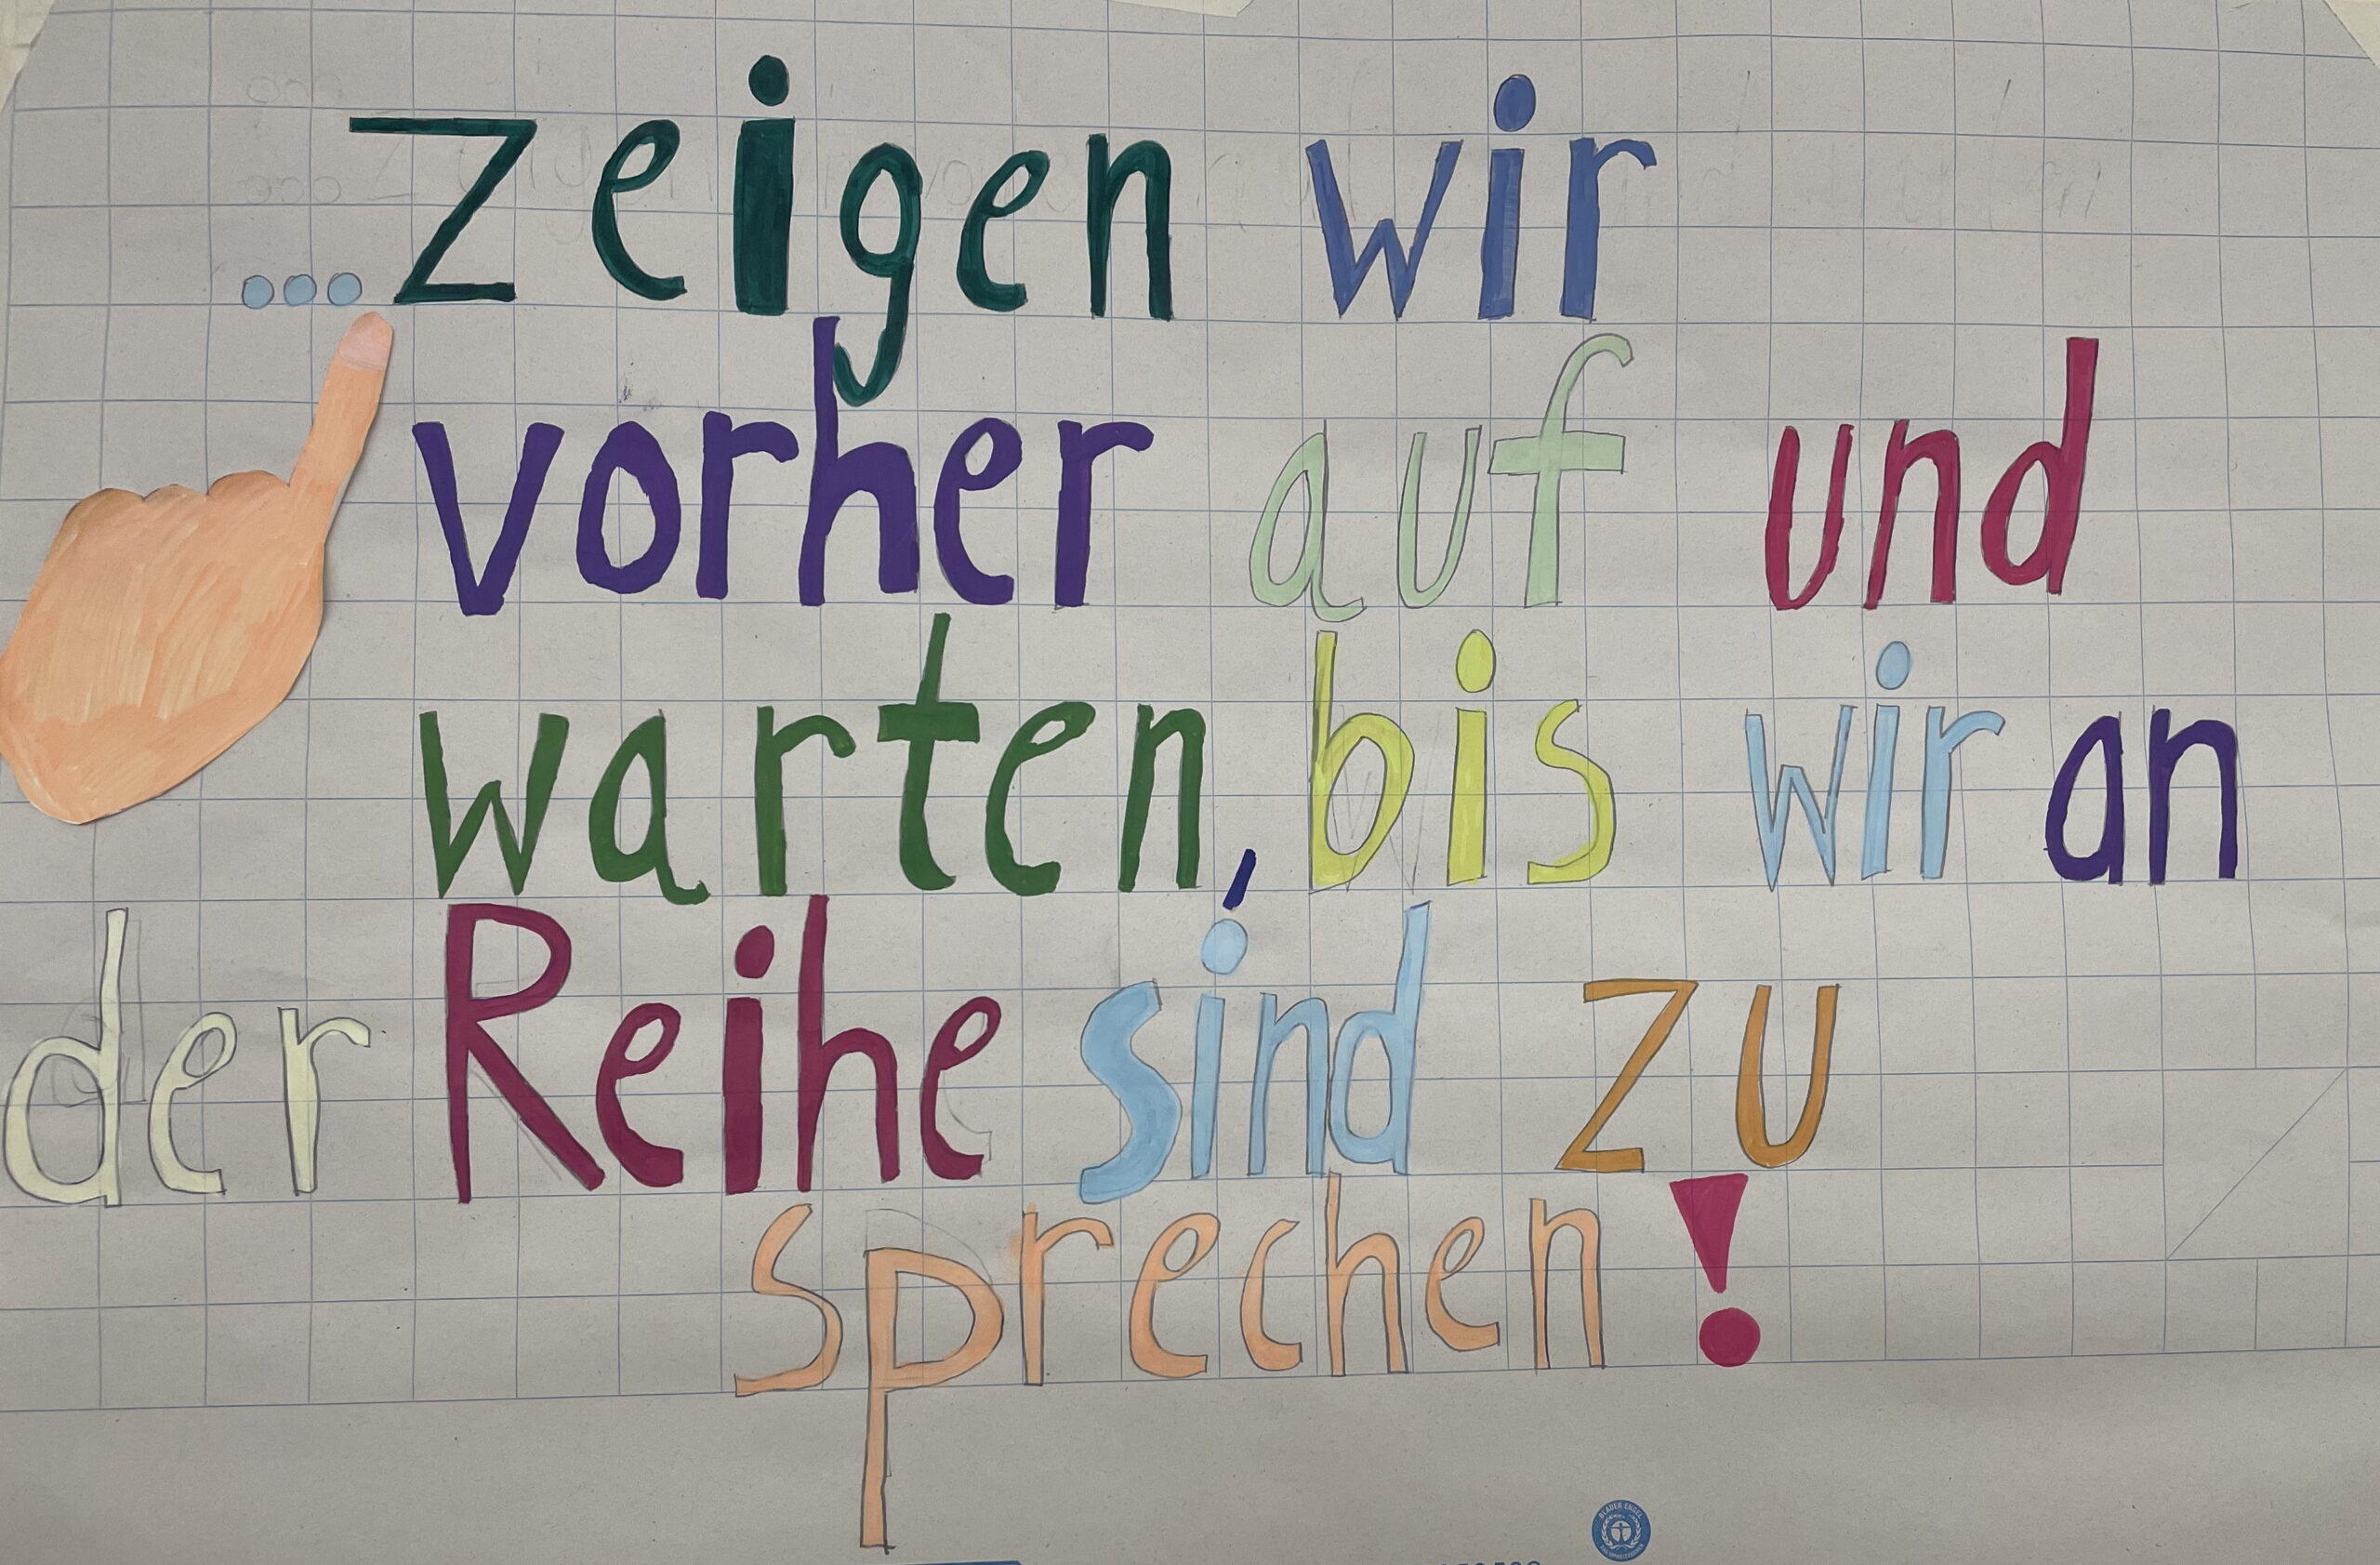 ...zeigen wir
vorher auf und
warten, bis wir an
der Reihe sind zu
sprechen!
BLAUER ENGEL